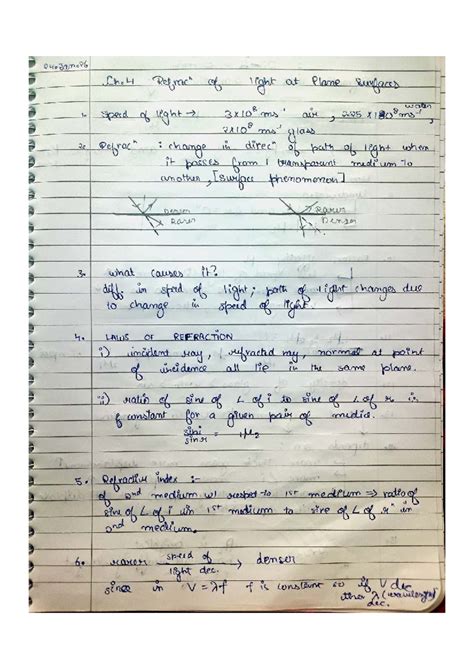 Ch.4 Refracⁿ of light at Plane Surfaces
1. Speed of light → 3x10⁸ ms⁻¹ air, 2.25 x 10⁸ ms⁻¹ water,
2x10⁸ ms⁻¹ glass
2. Refracⁿ : change in direcⁿ of path of light when
it passes from 1 transparent medium to
another, [Surface phenomenon]
Denser
Rarer
Rarer
Denser
3. what causes it?
diff. in speed of light; path of light changes due
to change in speed of light.
4. LAWS OF REFRACTION
i) incident ray, refracted ray, normal at point
of incidence all lie in the same plane.
ii) ratio of sine of L of i to sine of L of r is
constant for a given pair of media.
sini
sinr = 1μ2
5. Refractive index :-
of 2nd medium w/ respect to 1st medium ⇒ ratio of
sine of L of i in 1st medium to sine of L of r in
2nd medium.
6. rarer speed of light dec. → denser
since in V = λf f is constant so if V dec
then λ (wavelength) dec.